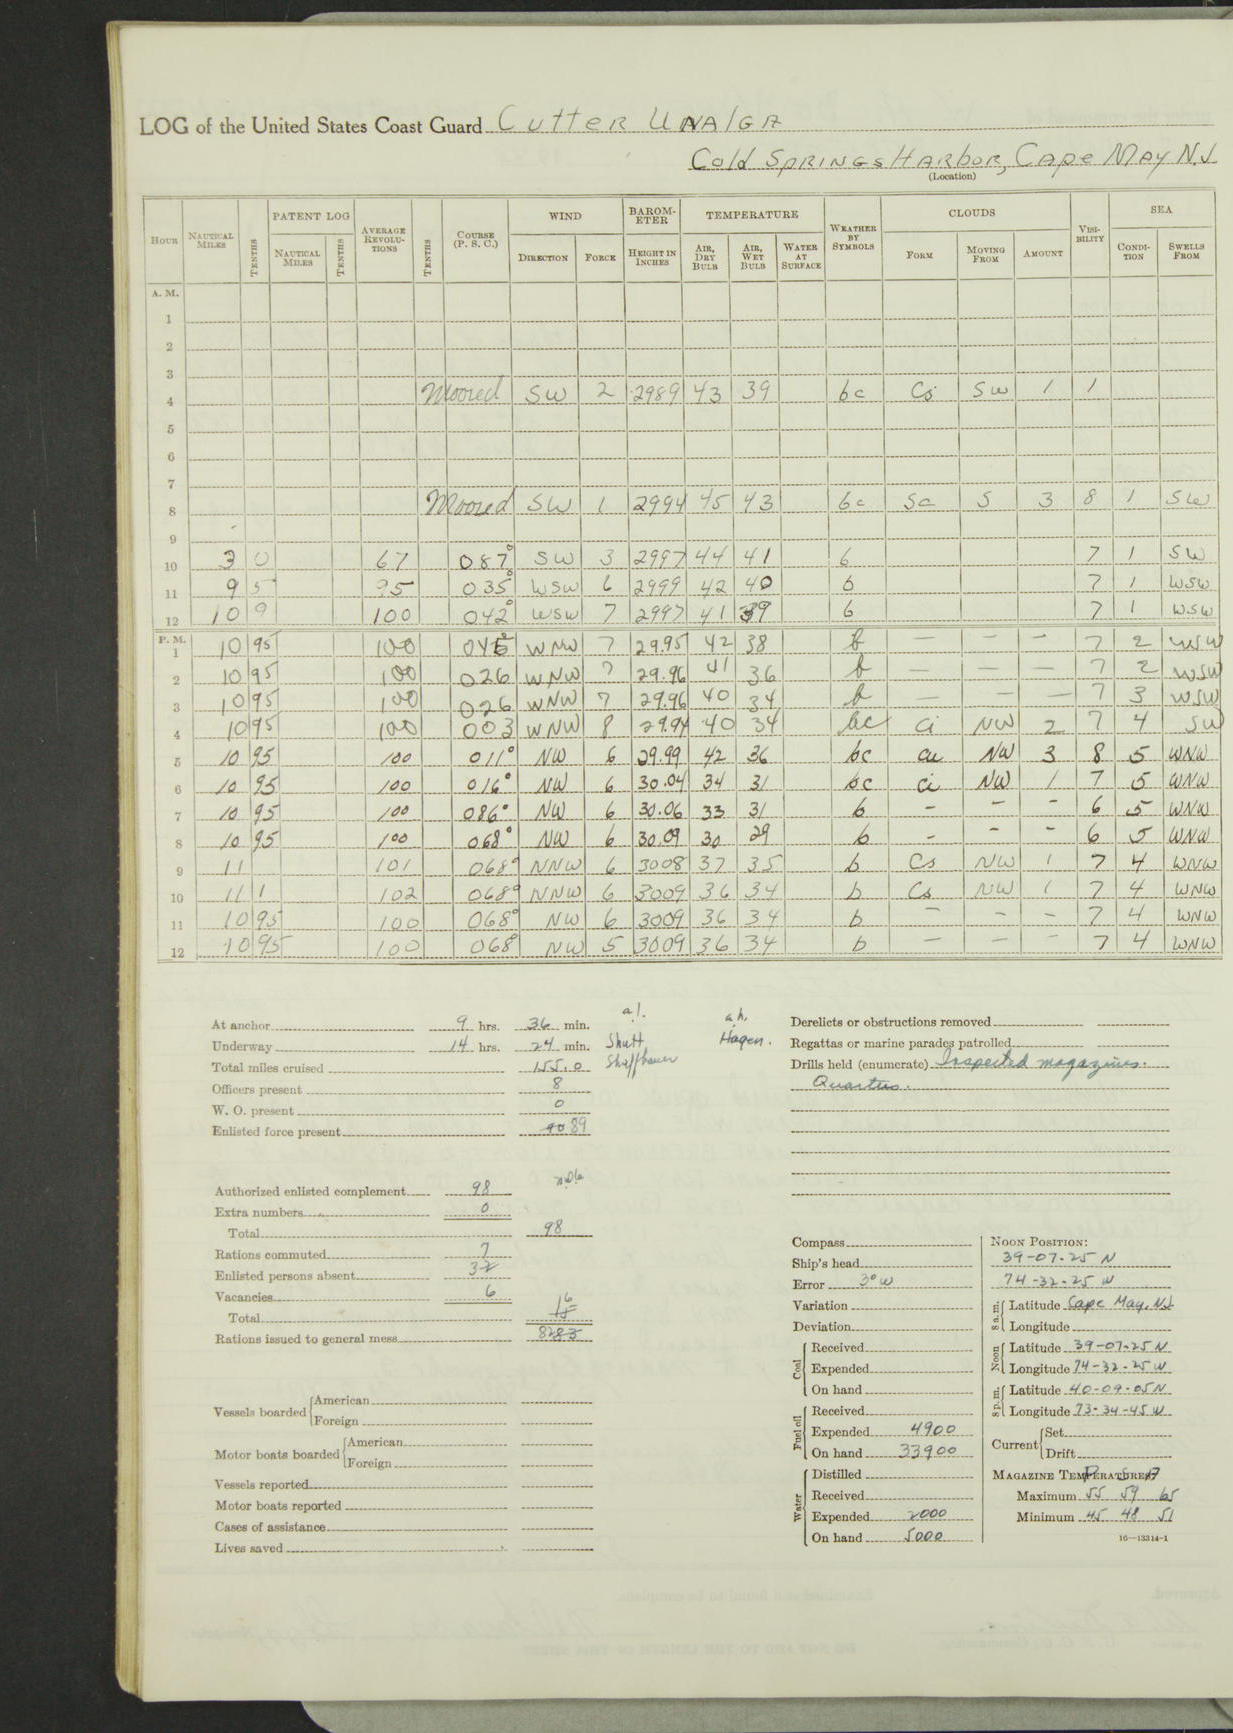 LOG of the United States Coast Guard Cutter UNALGA
Cold Springs Harbor, Cape May N.J.
(Location)
HOUR NAUTICAL MILES TENTHS PATENT LOG NAUTICAL MILES TENTHS AVERAGE REVOLUTIONS TENTHS COURSE (P. S. C.) WIND DIRECTION FORCE BAROMETER HEIGHT IN INCHES TEMPERATURE AIR, DRY BULB AIR, WET BULB WATER AT SURFACE WEATHER BY SYMBOLS CLOUDS FORM MOVING FROM AMOUNT VISIBILITY SEA CONDITION SWELLS FROM
A. M.
1
2
3
4 Moored SW 2 2989 43 39 bc Ci SW 1 1
5
6
7
8 Moored SW 1 2994 45 43 bc Sc S 3 8 1 SW
9
10 3 0 67 087° SW 3 2997 44 41 b 7 1 SW
11 9 5 95 035° WSW 6 2999 42 40 b 7 1 WSW
12 10 9 100 042° WSW 7 2997 41 39 b 7 1 WSW
P. M.
1 10 95 100 WNW 7 29.95 42 38 b — — — 7 2 WSW
2 10 95 100 026 WNW 7 29.96 41 36 b — — — 7 2 WSW
3 10 95 100 026 WNW 7 29.96 40 34 b — — — 7 3 WSW
4 10 95 100 003 WNW 8 29.94 40 34 bc Ci NW 2 7 4 SW
5 10 95 100 011° NW 6 29.99 42 36 bc cu NW 3 8 5 WNW
6 10 95 100 016° NW 6 30.04 34 31 bc Ci NW 1 7 5 WNW
7 10 95 100 086° NW 6 30.06 33 31 b – – – 6 5 WNW
8 10 95 100 068° NW 6 30.09 30 29 b – – – 6 5 WNW
9 11 101 068° NNW 6 3008 37 35 b Cs NW 1 7 4 WNW
10 11 1 102 068° NNW 6 3009 36 34 b Cs NW 1 7 4 WNW
11 10 95 100 068° NW 6 3009 36 34 b – – – 7 4 WNW
12 10 95 100 068° NW 5 3009 36 34 b – – – 7 4 WNW
At anchor 9 hrs. 36 min.
a.l.
Underway 14 hrs. 24 min.
Shutt
a.h.
Hagen.
Total miles cruised 155.0
Officers present 8
W. O. present 0
Enlisted force present 90 89
Authorized enlisted complement 98
Extra numbers 0
Total 98
Rations commuted 7
Enlisted persons absent 32
Vacancies 6
Total 16 15
Rations issued to general mess 82 83
Vessels boarded American
Foreign
Motor boats boarded American
Foreign
Vessels reported
Motor boats reported
Cases of assistance
Lives saved
Derelicts or obstructions removed
Regattas or marine parades patrolled
Drills held (enumerate) Inspected magazines.
Quarters.
Compass
Ship's head
Error 3° W
Variation
Deviation
Coal Received
Expended
On hand
Fuel oil Received
Expended 4900
On hand 33900
Water Distilled
Received
Expended 2000
On hand 5000
NOON POSITION:
39-07-25 N
74-32-25 W
8 a.m. Latitude Cape May, NJ
Longitude
Noon Latitude 39-07-25 N
Longitude 74-32-25 W
8 p.m. Latitude 40-09-05 N
Longitude 73-34-45 W
Current Set
Drift
MAGAZINE TEMPERATURE: P S A
Maximum 55 59 65
Minimum 45 48 51
16—13314-1